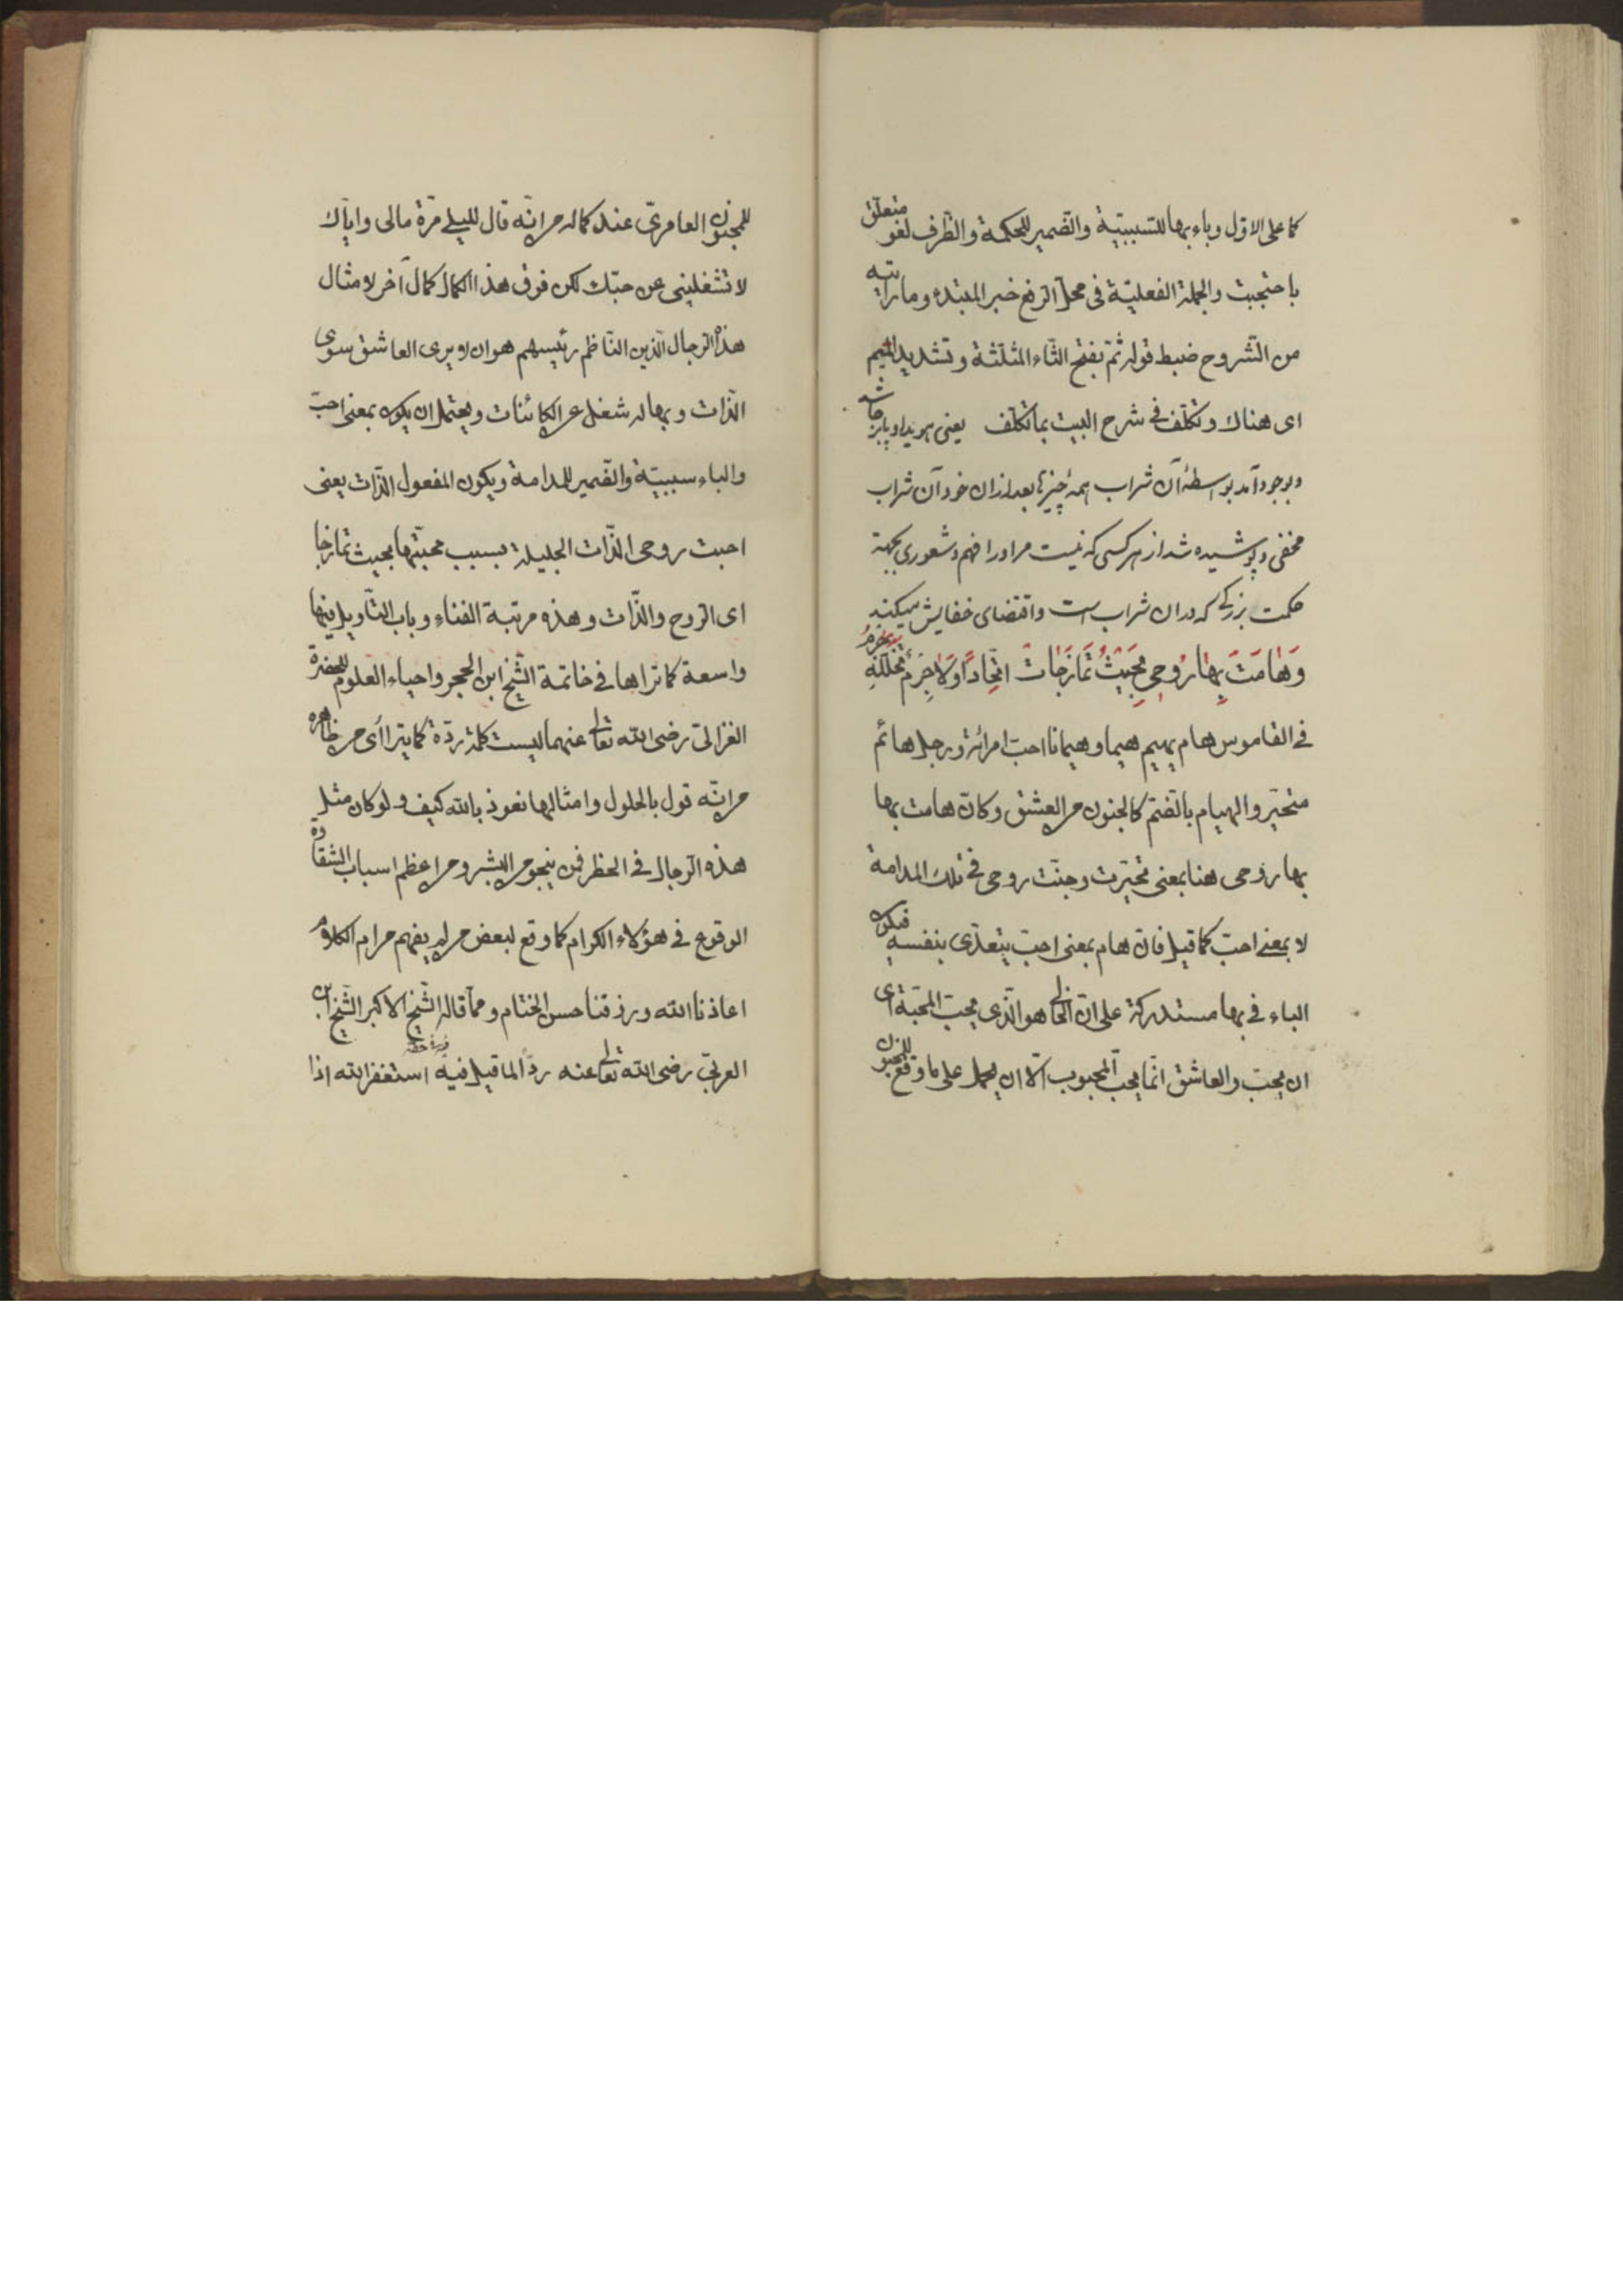 كما على الاوّل وباء بها للتسببيّة والضمير للحكمة والظّرف لغو متعلّق
باحتجبت والجملة الفعليّة فى محلّ الرّفع خبر المبتدء وما رأيته
من الشّروح ضبط قوله ثمّ بفتح الثّاء المثلّثة وتشديد الميم
اى هناك وتكلّف فى شرح البيت بما تكلّف يعنى هويدا وپابرجا شد
وبوجود آمد بواسطهٔ آن شراب همه چيزها بعد ازان خود آن شراب
مخفى وپوشيده شد از هر كسى كه نيست مر اورا فهم وشعورى بجهة
حكمت بزرگى كه دران شراب است واقتضاى خفايش ميكند
وَهَامَتْ بِهَا رُوحِى بِحَيْثُ تَمَازَجَاتّ اتّحَادًا وَلَا جِرْمٌ تَخَلَّلَهُ جِرْمُ
فى القاموس هام يهيم هيما وهيمانا احبّ امرائة ورجل هائم
متحيّر والهيام بالضّم كالجنون من العشق وكانّ هامت بها
بها روحى هنا بمعنى تحيّرت وجنّت روحى فى تلك المدامة
لا بمعنى احبّ كما قيل فانّ هام بمعنى احبّ يتعدّى بنفسه فيكون
الباء فى بها مستدركة على انّ الخالى هو الّذى يحبّ المحبّة اى
ان يحبّ والعاشق انّما يحبّ المحبوب الّا ان يحمل على ما وقع للمجنون
للمجنون العامرىّ عند كماله من انّه قال لليلى مرّة مالى وايّاك
لا تشغلينى عن حبّك لكن فوق هذا الكمال كمال آخر لامثال
هذه الرّجال الّذين النّاظم رئيسهم هو ان لا يرى العاشق سوى
الذّات وبها له شغل عن الكائنات ويحتمل ان يكون بمعنى احبّ
والباء سببيّة والضّمير للمدامة ويكون المفعول الذّات يعنى
احبت روحى الذّات الجليلة بسبب محبّتها بحيث تمازجا
اى الرّوح والذّات وهذه مرتبة الفناء وباب التّأويل فيها
واسعة كما تراها فى خاتمة الشّيخ ابن الحجر واحياء العلوم لحضرة
الغزالىّ رضى الله تعالى عنهما ليست كلمة ردّة كما يترا أى من ظاهره
من انّه قول بالحلول وامثالها نعوذ بالله كيف ولو كان مثل
هذه الرّجال فى الخطر فمن ينجو من البشر ومن اعظم اسباب الشّقاوة
الوقوع فى هؤلاء الكرام كما وقع لبعض من لم يفهم مرام الكلام
اعاذنا الله ورزقنا حسن الختام وممّا قاله الشّيخ الاكبر الشّيخ ابن
العربىّ رضى الله تعالى عنه ردّا لما قيل فيه استغفر الله اذا